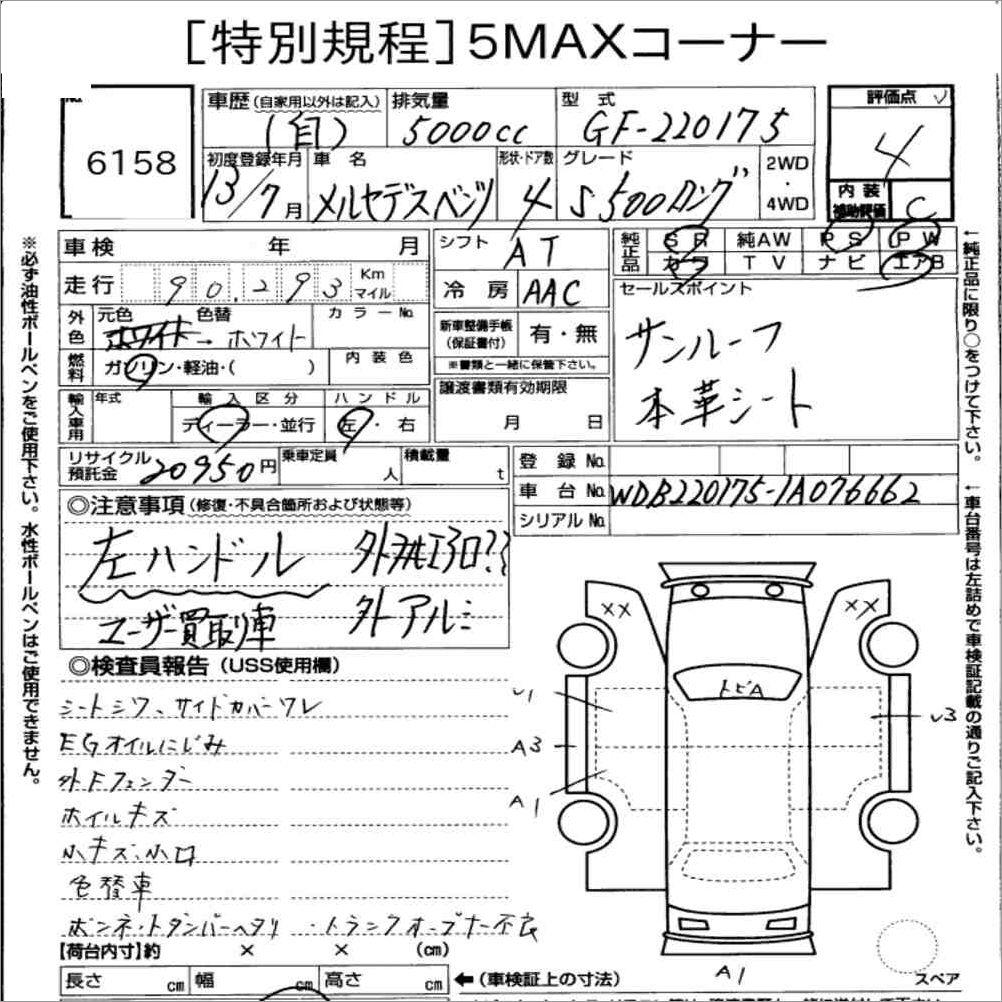 [特別規程]5MAXコーナー
6158
車歴(自家用以外は記入) 排気量 型式 評価点
(自) 5000cc GF-220175 4
初度登録年月 車名 形状・ドア数 グレード 2WD・4WD 内装補助評価
13/7月 メルセデスベンツ 4 S500ロング C
車検 年 月 シフト AT 純正品 SR 純AW PS PW
カワ TV ナビ エアB
走行 90.293 Km マイル 冷房 AAC セールスポイント
外色 元色 色替 カラーNo. 新車整備手帳(保証書付) 有・無
ホワイト→ホワイト サンルーフ
※書類と一緒に保管下さい。
燃料 ガソリン・軽油・( ) 内装色 本革シート
譲渡書類有効期限
月 日
輸入車用 年式 輸入区分 ハンドル
ディーラー・並行 左・右
リサイクル預託金 20950円 乗車定員 人 積載量 t
登録No.
車台No. WDB220175-1A076662
シリアルNo.
◎注意事項(修復・不具合箇所および状態等)
左ハンドル
ユーザー買取り車 外アルミ
◎検査員報告(USS使用欄)
シートシワ、サイドカバーワレ
EGオイルにじみ
外Fフェンダー
ホイルキズ
小キズ、小口
色替車
ボンネットダンパーヘタリ・トランクオープナー不良
XX XX
トビA
U1
U3
A3
A1
A1
スペア
【荷台内寸】約 × × (cm)
長さ cm 幅 cm 高さ cm ←(車検証上の寸法)
※必ず油性ボールペンをご使用下さい。水性ボールペンはご使用できません。
←純正品に限り○をつけて下さい。
←車台番号は左詰めで車検証記載の通りご記入下さい。